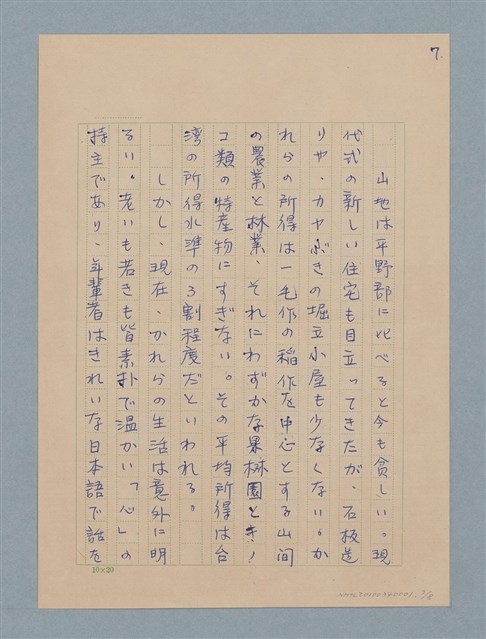 7.
山地は平野部に比べると今も貧しい。現
代式の新しい住宅も目立ってきたが、石板造
りや、カヤぶきの堀立小屋も少なくない。か
れらの所得は一毛作の稲作を中心とする山間
の農業と林業、それにわずかな果樹園とキノ
コ類の特産物にすぎない。その平均所得は台
湾の所得水準の3割程度だといわれる。
しかし、現在、かれらの生活は意外に明
るい。老いも若きも皆素朴で温かい「心」の
持主であり、年輩者はきれいな日本語で話を
10×20